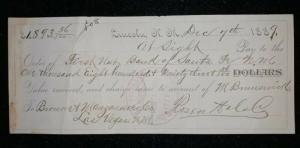 $1,893 56/100 Lincoln N. M. Dec 7th 1889.
At Sight Pay to the
Order of First Nat. Bank of Santa Fe N.M.
One thousand Eight hundred & Ninety three DOLLARS
Value received, and charge same to account of M Brunswick
To Browne & Manzanares Co
Las Vegas N.M.